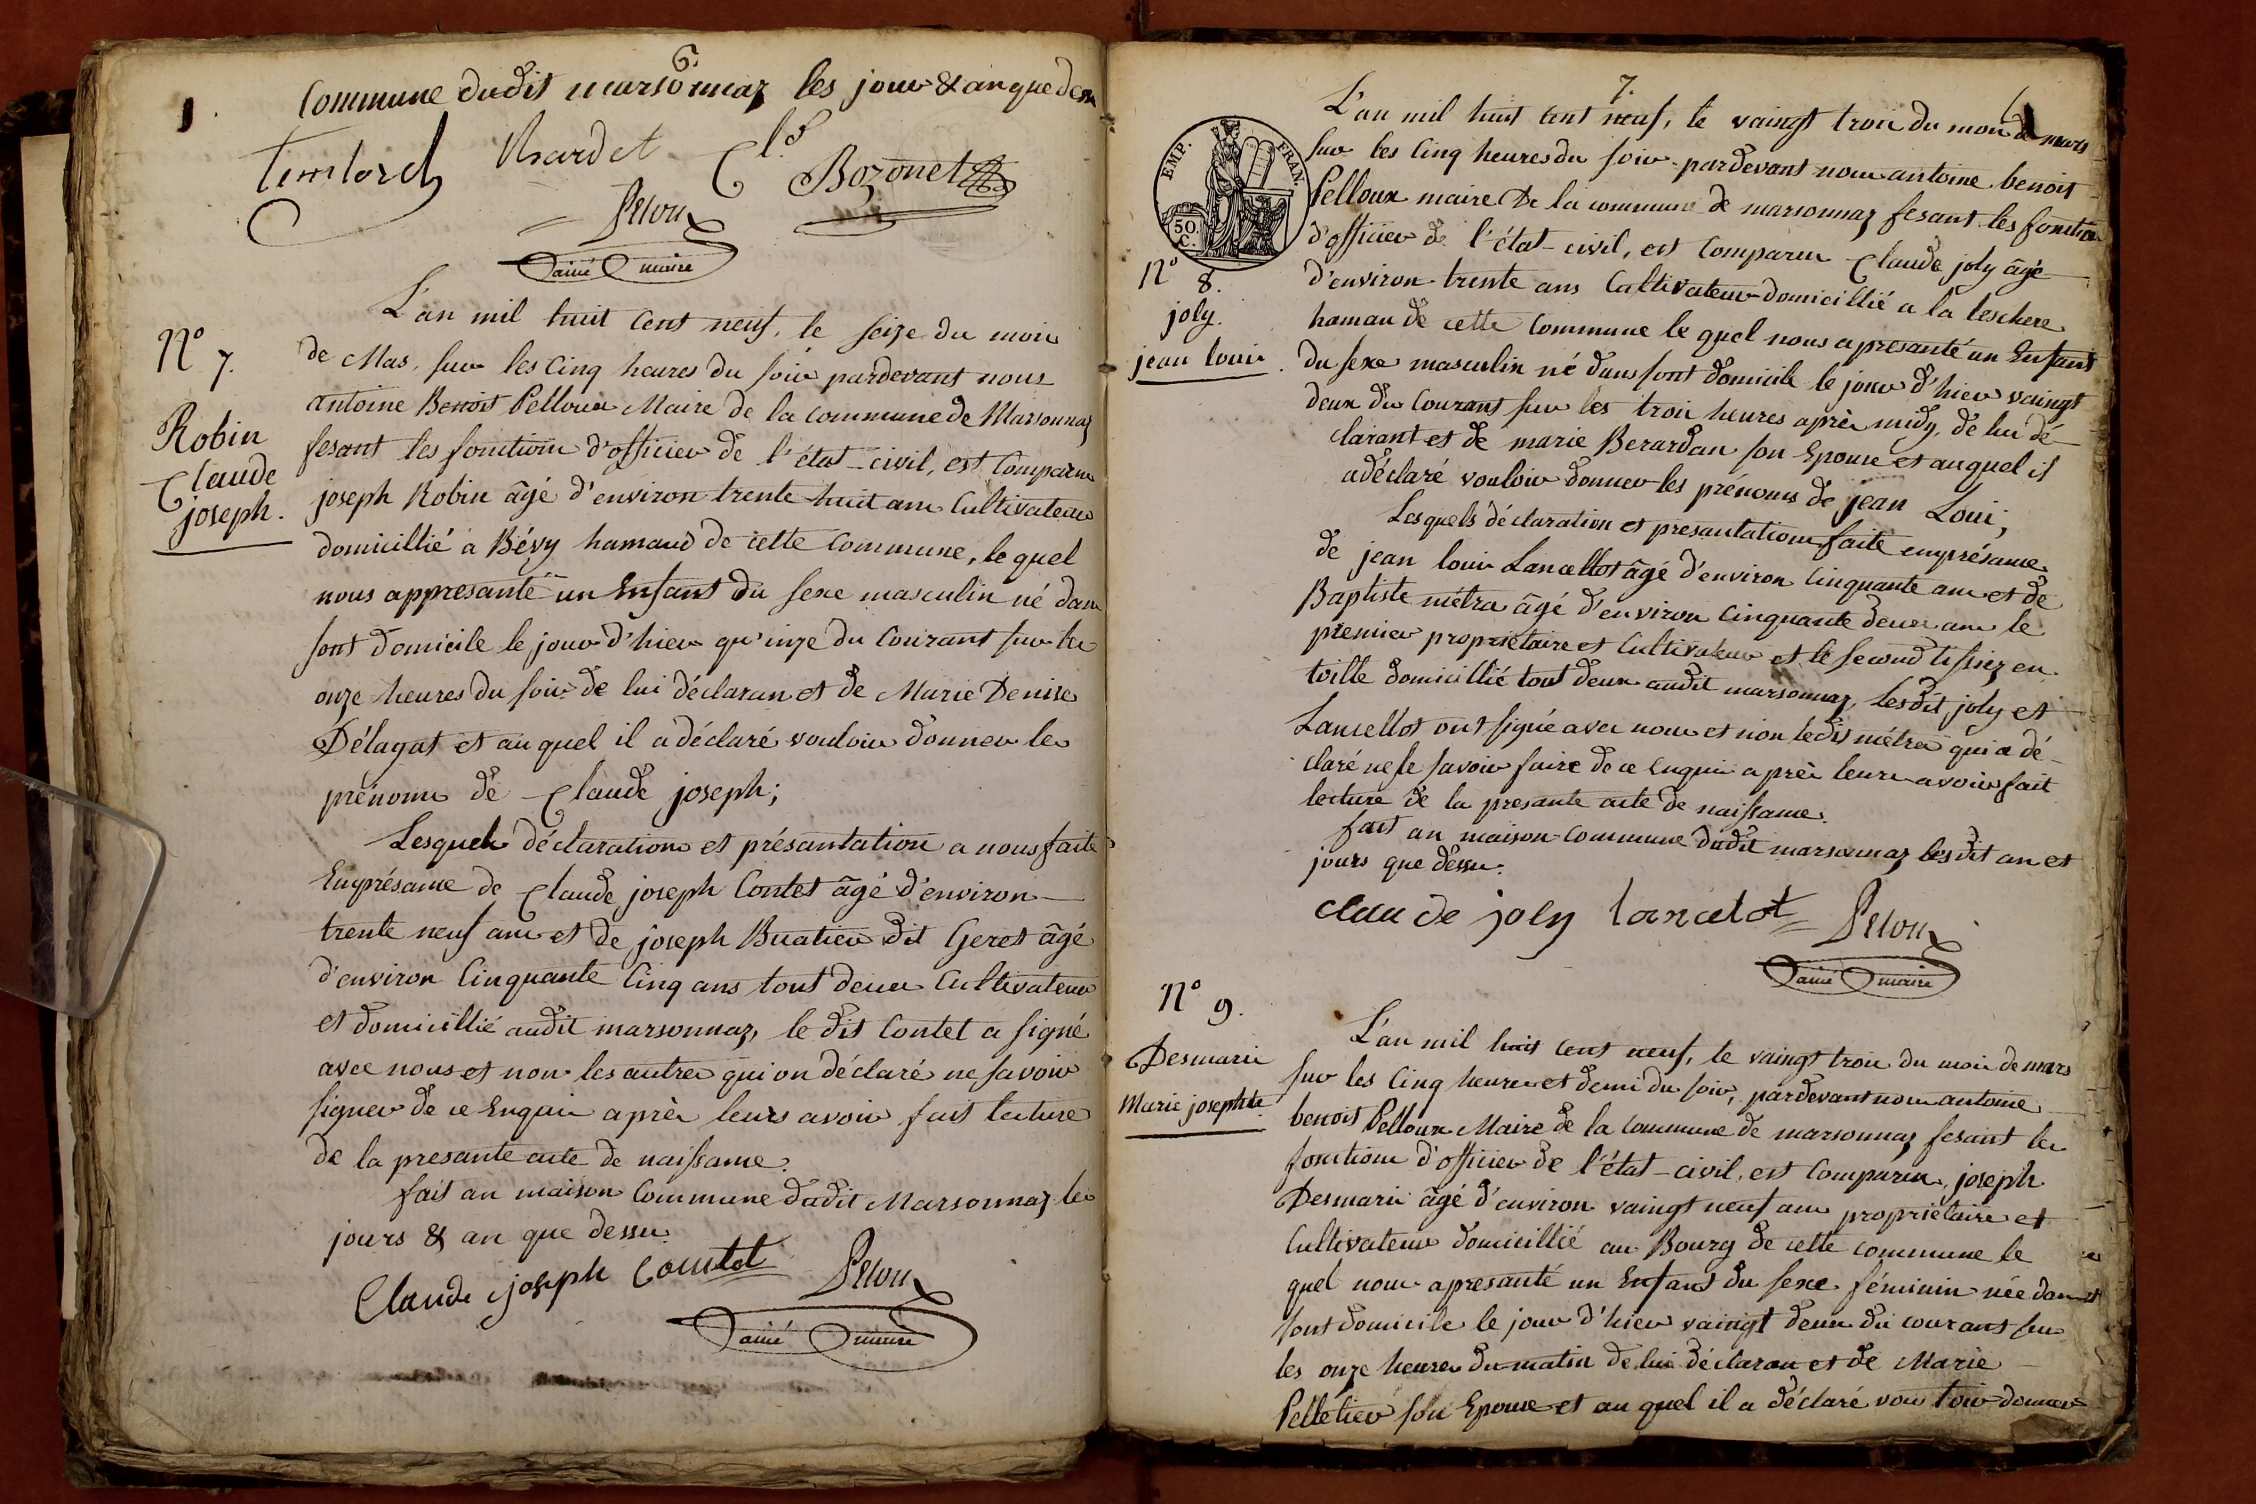 6.
1.
Commune dudit marsonnaz les jour & an que dessu
Chardet
Cl.
Bozonet
Pellou
ainé maire
N.o
7.
Robin
Claude
joseph.
L'an mil huit cent neuf, le seize du mois
de Mas, sur les cinq heures du soir pardevant nous
antoine Benoit Pelloux Maire de la commune de Marsonnaz
fesant les fonctions d'officier de l'état-civil, est Comparu
joseph Robin âgé d'environ trente huit ans Cultivateur
domicillié a Bévy hamaud de cette Commune, le quel
nous appresanté un Enfant du sexe masculin né dans
sont domicile le jour d'hier qu'inze du Courant sur les
onze heures du soir de lui déclaran et de Marie Denise
Délagat et au quel il a déclaré vouloir donner les
prénoms de Claude joseph;
Lesquels déclaration et présantation a nous faite
Emprésance de Claude joseph Contet âgé d'environ
trente neuf ans et de joseph Buatier dit Geret âgé
d'environ Cinquante Cinq ans tout deux Cultivateur
et domicillié audit marsonnaz, le dit Contet a signé
avec nous et non les autres qui on déclaré ne savoir
signer de ce Enquis après leurs avoir fait lecture
de la presante acte de naissance.
fait an maison Commune dudit Marsonnaz les
jours & an que dessu.
Claude joseph Contet
Pellou
ainé maire
7.
EMP. FRAN.
50.
C.
N.o
8.
joly.
jean louis
L'an mil huit cent neuf, le vaingt trois du mois de mars
sur les Cinq heures du soir pardevant nous antoine benoit
Pelloux maire De la commune de marsonnaz fesant les fonctions
d'officier de l'état-civil, est Comparu Claude joly âgé
d'environ trente ans Cultivateur domicillié a la leschere
hamau de cette Commune le quel nous apresanté un Enfant
du sexe masculin né dans sont domicile le jour d'hier vaingt
deux du Courant sur les trois heures après midy, de lui dé-
clarant et de marie Berardan son Epouse et auquel il
a déclaré vouloir donner les prénoms de jean Louis;
Lesquels déclaration et presantation faite emprésance
de jean louis Lancellot âgé d'environ Cinquante ans et de
Baptiste métra âgé d'environ Cinquante deux ans le
premier proprietaire et Cultivateur et le second tissiez en
toille domicillié tout deux audit marsonnaz, lesdit joly et
Lancellot ont signé avec nous et non ledit métra qui a dé-
claré ne le savoir faire de ce Enquis après leurs avoir fait
lecture de la presante acte de naissance.
fait an maison Commune dudit marsonnaz lesdit an et
jours que dessu.
claude joly lancelot Pellou
ainé maire
N.o
9.
Desmaris
Marie josephte
L'an mil huit cent neuf, le vaingt trois du mois de mars
sur les Cinq heures et demi du soir, pardevant nous antoine
benoit Pelloux Maire de la Commune de marsonnaz fesant les
fonctions d'officier de l'état-civil, est Comparu, joseph
Desmaris âgé d'environ vaingt neuf ans propriétaire et
Cultivateur domicillié au Bourg de cette commune le
quel nous apresanté un Enfant du sexe féminin née dans
sont domicile le jour d'hier vaingt deux du courant sur
les onze heures du matin de lui déclaran et de Marie
Pelletier son Epouse et au quel il a déclaré vouloir donner